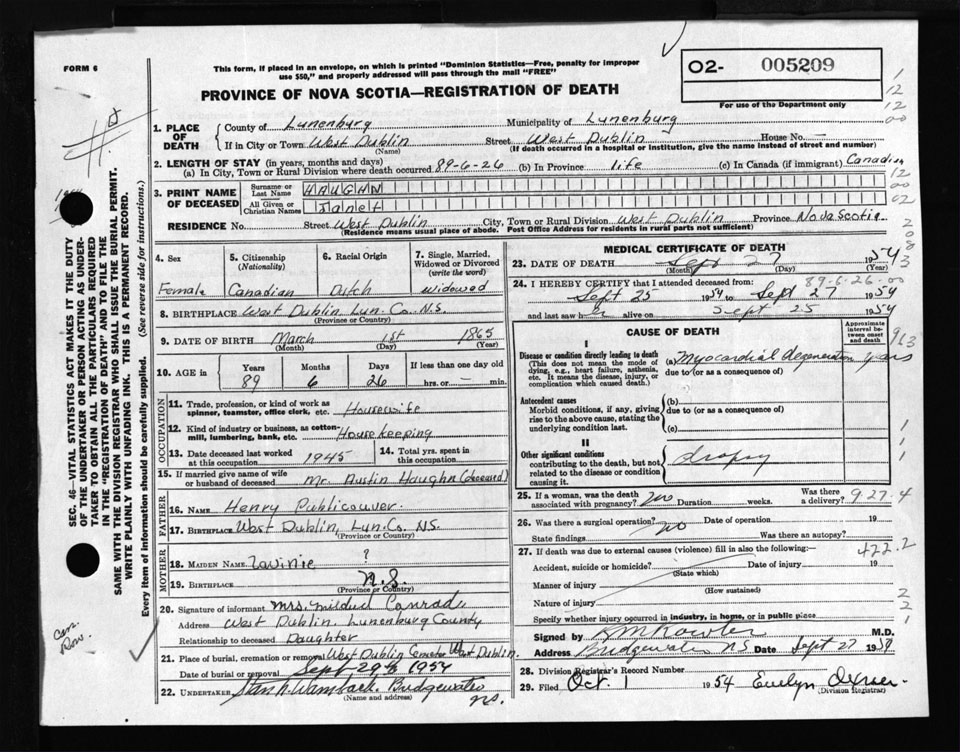 FORM 6
This form, if placed in an envelope, on which is printed "Dominion Statistics—Free, penalty for improper
use $50," and properly addressed will pass through the mail "FREE"
PROVINCE OF NOVA SCOTIA—REGISTRATION OF DEATH
O2- 005209
For use of the Department only
1. PLACE OF DEATH
County of Lunenburg Municipality of Lunenburg
If in City or Town West Dublin Street West Dublin House No. —
(Name) (If death occurred in a hospital or institution, give the name instead of street and number)
2. LENGTH OF STAY (in years, months and days)
(a) In City, Town or Rural Division where death occurred 89-6-26 (b) In Province life (c) In Canada (if immigrant) Canadian
3. PRINT NAME OF DECEASED
Surname or Last Name HAUGHN
All Given or Christian Names Janet
RESIDENCE No. Street West Dublin City, Town or Rural Division West Dublin Province Nova Scotia
(Residence means usual place of abode. Post Office Address for residents in rural parts not sufficient)
SEC. 46—VITAL STATISTICS ACT MAKES IT THE DUTY
OF THE UNDERTAKER OR PERSON ACTING AS UNDER-
TAKER TO OBTAIN ALL THE PARTICULARS REQUIRED
IN THE "REGISTRATION OF DEATH" AND TO FILE THE
SAME WITH THE DIVISION REGISTRAR WHO SHALL ISSUE THE BURIAL PERMIT.
WRITE PLAINLY WITH UNFADING INK. THIS IS A PERMANENT RECORD.
Every item of information should be carefully supplied. (See reverse side for instructions.)
4. Sex
Female
5. Citizenship (Nationality)
Canadian
6. Racial Origin
Dutch
7. Single, Married, Widowed or Divorced (write the word)
Widowed
8. BIRTHPLACE West Dublin, Lun. Co. N.S.
(Province or Country)
9. DATE OF BIRTH March 1st 1865
(Month) (Day) (Year)
10. AGE in Years Months Days If less than one day old
89 6 26 hrs. or — min.
OCCUPATION
11. Trade, profession, or kind of work as
spinner, teamster, office clerk, etc. Housewife
12. Kind of industry or business, as cotton-
mill, lumbering, bank, etc. House keeping
13. Date deceased last worked
at this occupation 1945
14. Total yrs. spent in
this occupation
15. If married give name of wife
or husband of deceased Mr. Austin Haughn (deceased)
FATHER
16. Name Henry Publicover
17. Birthplace West Dublin, Lun. Co. N.S.
(Province or Country)
MOTHER
18. Maiden Name Lavinie ?
19. Birthplace N.S.
(Province or Country)
20. Signature of informant Mrs. Mildred Conrad
Address West Dublin. Lunenburg County
Relationship to deceased Daughter
21. Place of burial, cremation or removal West Dublin West Dublin.
Date of burial or removal Sept 29th 1954
22. Undertaker Stan R. Wamback. Bridgewater
(Name and address) NS.
MEDICAL CERTIFICATE OF DEATH
23. DATE OF DEATH Sept 27 1954
(Month) (Day) (Year)
89-6-26-00
24. I HEREBY CERTIFY that I attended deceased from:
Sept 25 1954 to Sept 27 1954
and last saw h er alive on Sept 25 1954
CAUSE OF DEATH
Approximate interval between onset and death
I
Disease or condition directly leading to death
(This does not mean the mode of
dying, e.g., heart failure, asthenia,
etc. It means the disease, injury, or
complication which caused death.)
(a) Myocardial degeneration years
due to (or as a consequence of)
Antecedent causes
Morbid conditions, if any, giving
rise to the above cause, stating the
underlying condition last.
(b)
due to (or as a consequence of)
(c)
II
Other significant conditions
contributing to the death, but not
related to the disease or condition
causing it.
dropsy
25. If a woman, was the death
associated with pregnancy? no Duration weeks. Was there a delivery? 9-27-4
26. Was there a surgical operation? no Date of operation 19
State findings Was there an autopsy?
27. If death was due to external causes (violence) fill in also the following:— 422.2
Accident, suicide or homicide? Date of injury 19
(State which)
Manner of injury
(How sustained)
Nature of injury
Specify whether injury occurred in industry, in home, or in public place
Signed by M.D.
Address Bridgewater NS Date Sept 27 1954
28. Division Registrar's Record Number
29. Filed Oct. 1 1954 Evelyn
(Division Registrar)